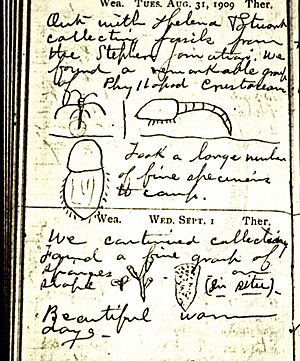 Wea. TUES. AUG. 31, 1909 Ther.
Out with Helena & Stuart
collecting fossils from
the Stephen formation. We
found a remarkable group
of Phyllopod Crustaceans
Took a large number
of fine specimens
to camp.
Wea. WED. SEPT. 1 Ther.
We continued collecting
found a fine group of
sponges on
slope (in situ)
Beautiful warm
days